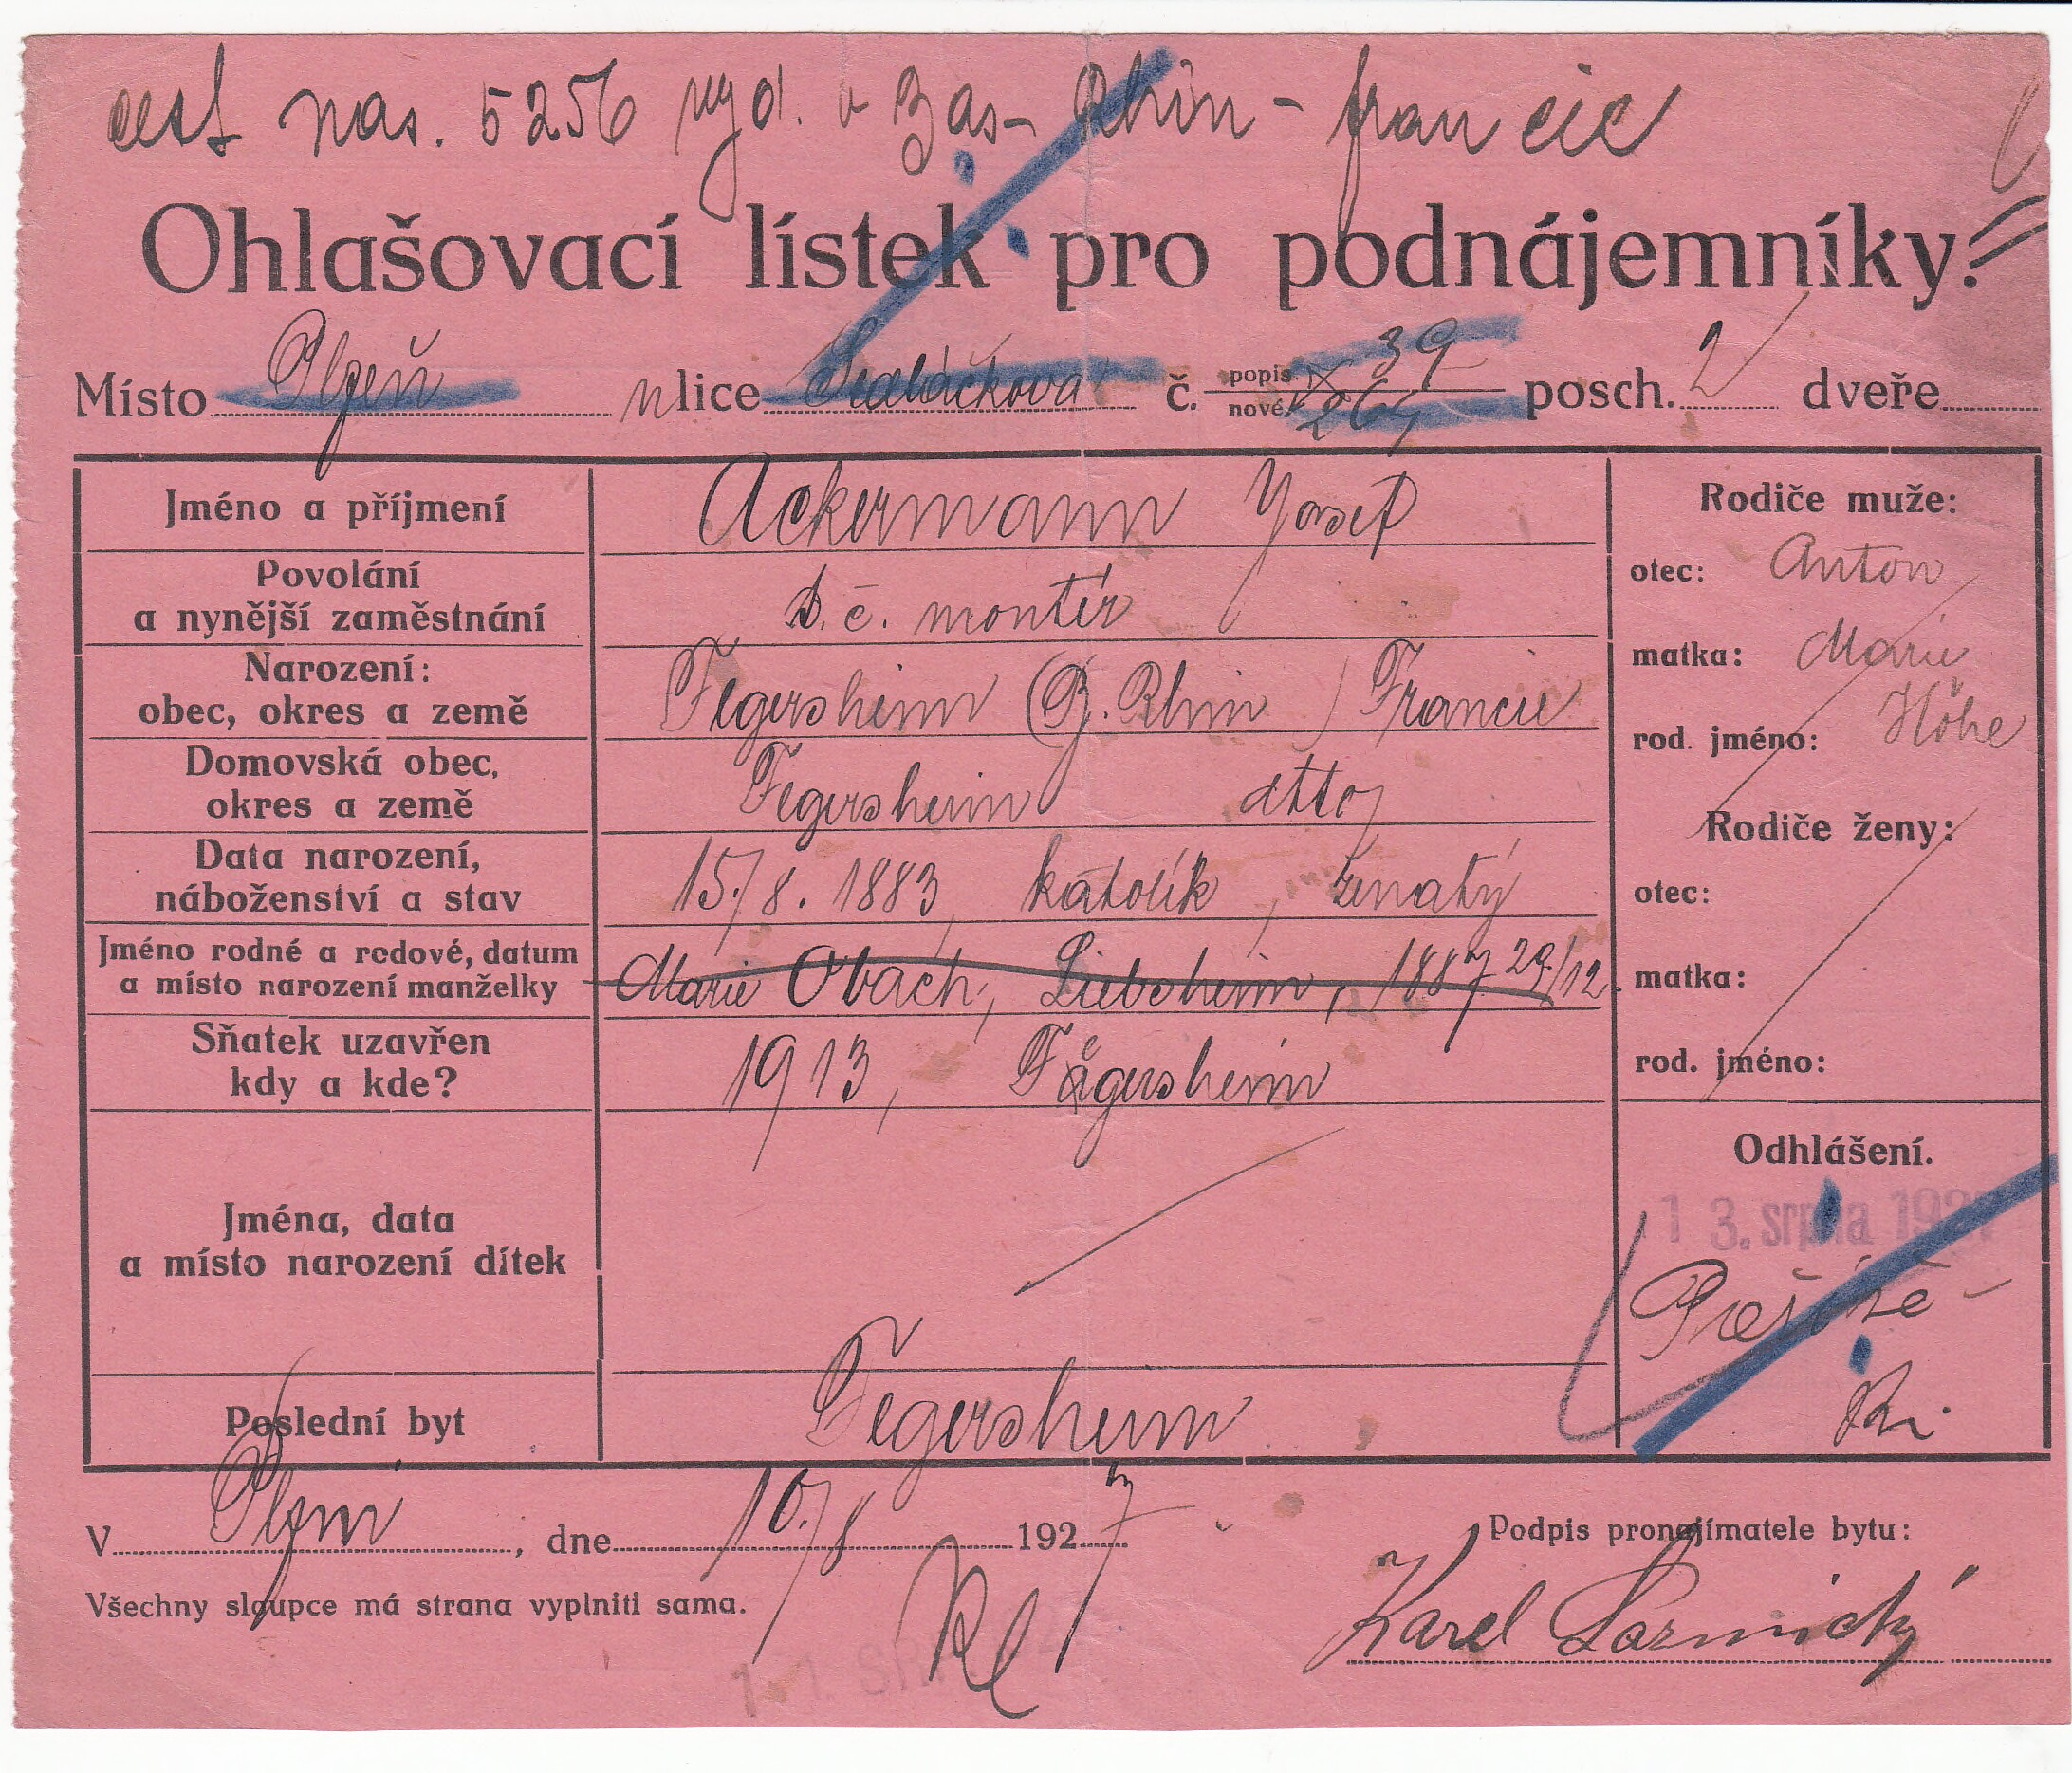 cest pas. 5256 vyd. v Bas-Rhin-francie
Ohlašovací lístek pro podnájemníky.
Místo Plzeň ulice Sedláčkova č. popis. 39 nové 264 posch. 2 dveře
Jméno a příjmení Ackermann Josef
Povolání
a nynější zaměstnání s. č. montér
Narození:
obec, okres a země Fegersheim (B. Rhin) Francie
Domovská obec,
okres a země Fegersheim dtto
Data narození,
náboženství a stav 15/8. 1883, katolík, ženatý
Jméno rodné a rodové, datum
a místo narození manželky Marie Obach, 1887 29/12.
Sňatek uzavřen
kdy a kde? 1913, Fegersheim
Jména, data
a místo narození dítek
Poslední byt Fegersheim
Rodiče muže:
otec: Anton
matka: Marie
rod. jméno: Höhe
Rodiče ženy:
otec:
matka:
rod. jméno:
Odhlášení.
13. srpna 1927
V Plzni, dne 10/8 1927
Podpis pronajímatele bytu:
Všechny sloupce má strana vyplniti sama.
Karel